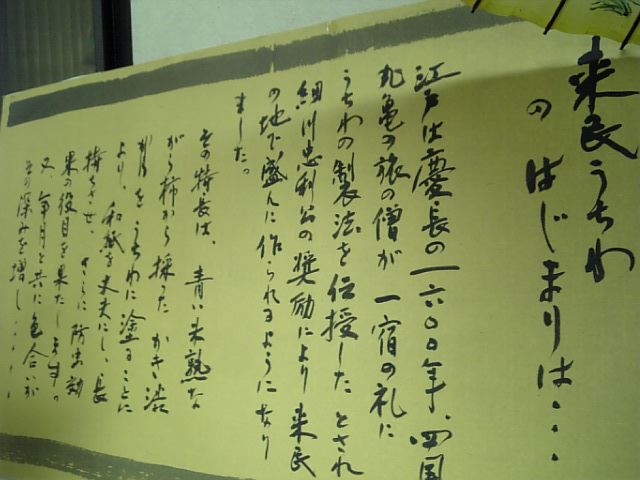 来民うちわ
の はじまりは・・・
江戸は慶長の一六〇〇年、四国
丸亀の旅の僧が 一宿の礼に
うちわの製法を伝授したとされ
細川忠利公の奨励により来民
の地で盛んに作られるようになり
ました。
その特長は、青い未熟な
がら柿から採った かき渋
をうちわに塗ることに
より、和紙を丈夫にし、長
持ちさせ、さらに防虫効
果の役目を果たします。
又、年月と共に色合いが
その深みを増し・・・・